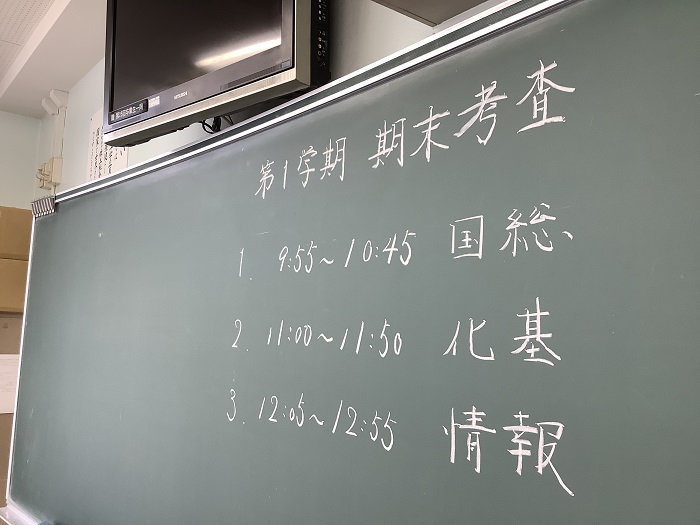 第1学期 期末考査
1. 9:55~10:45 国総
2. 11:00~11:50 化基
3. 12:05~12:55 情報
MITSUBISHI